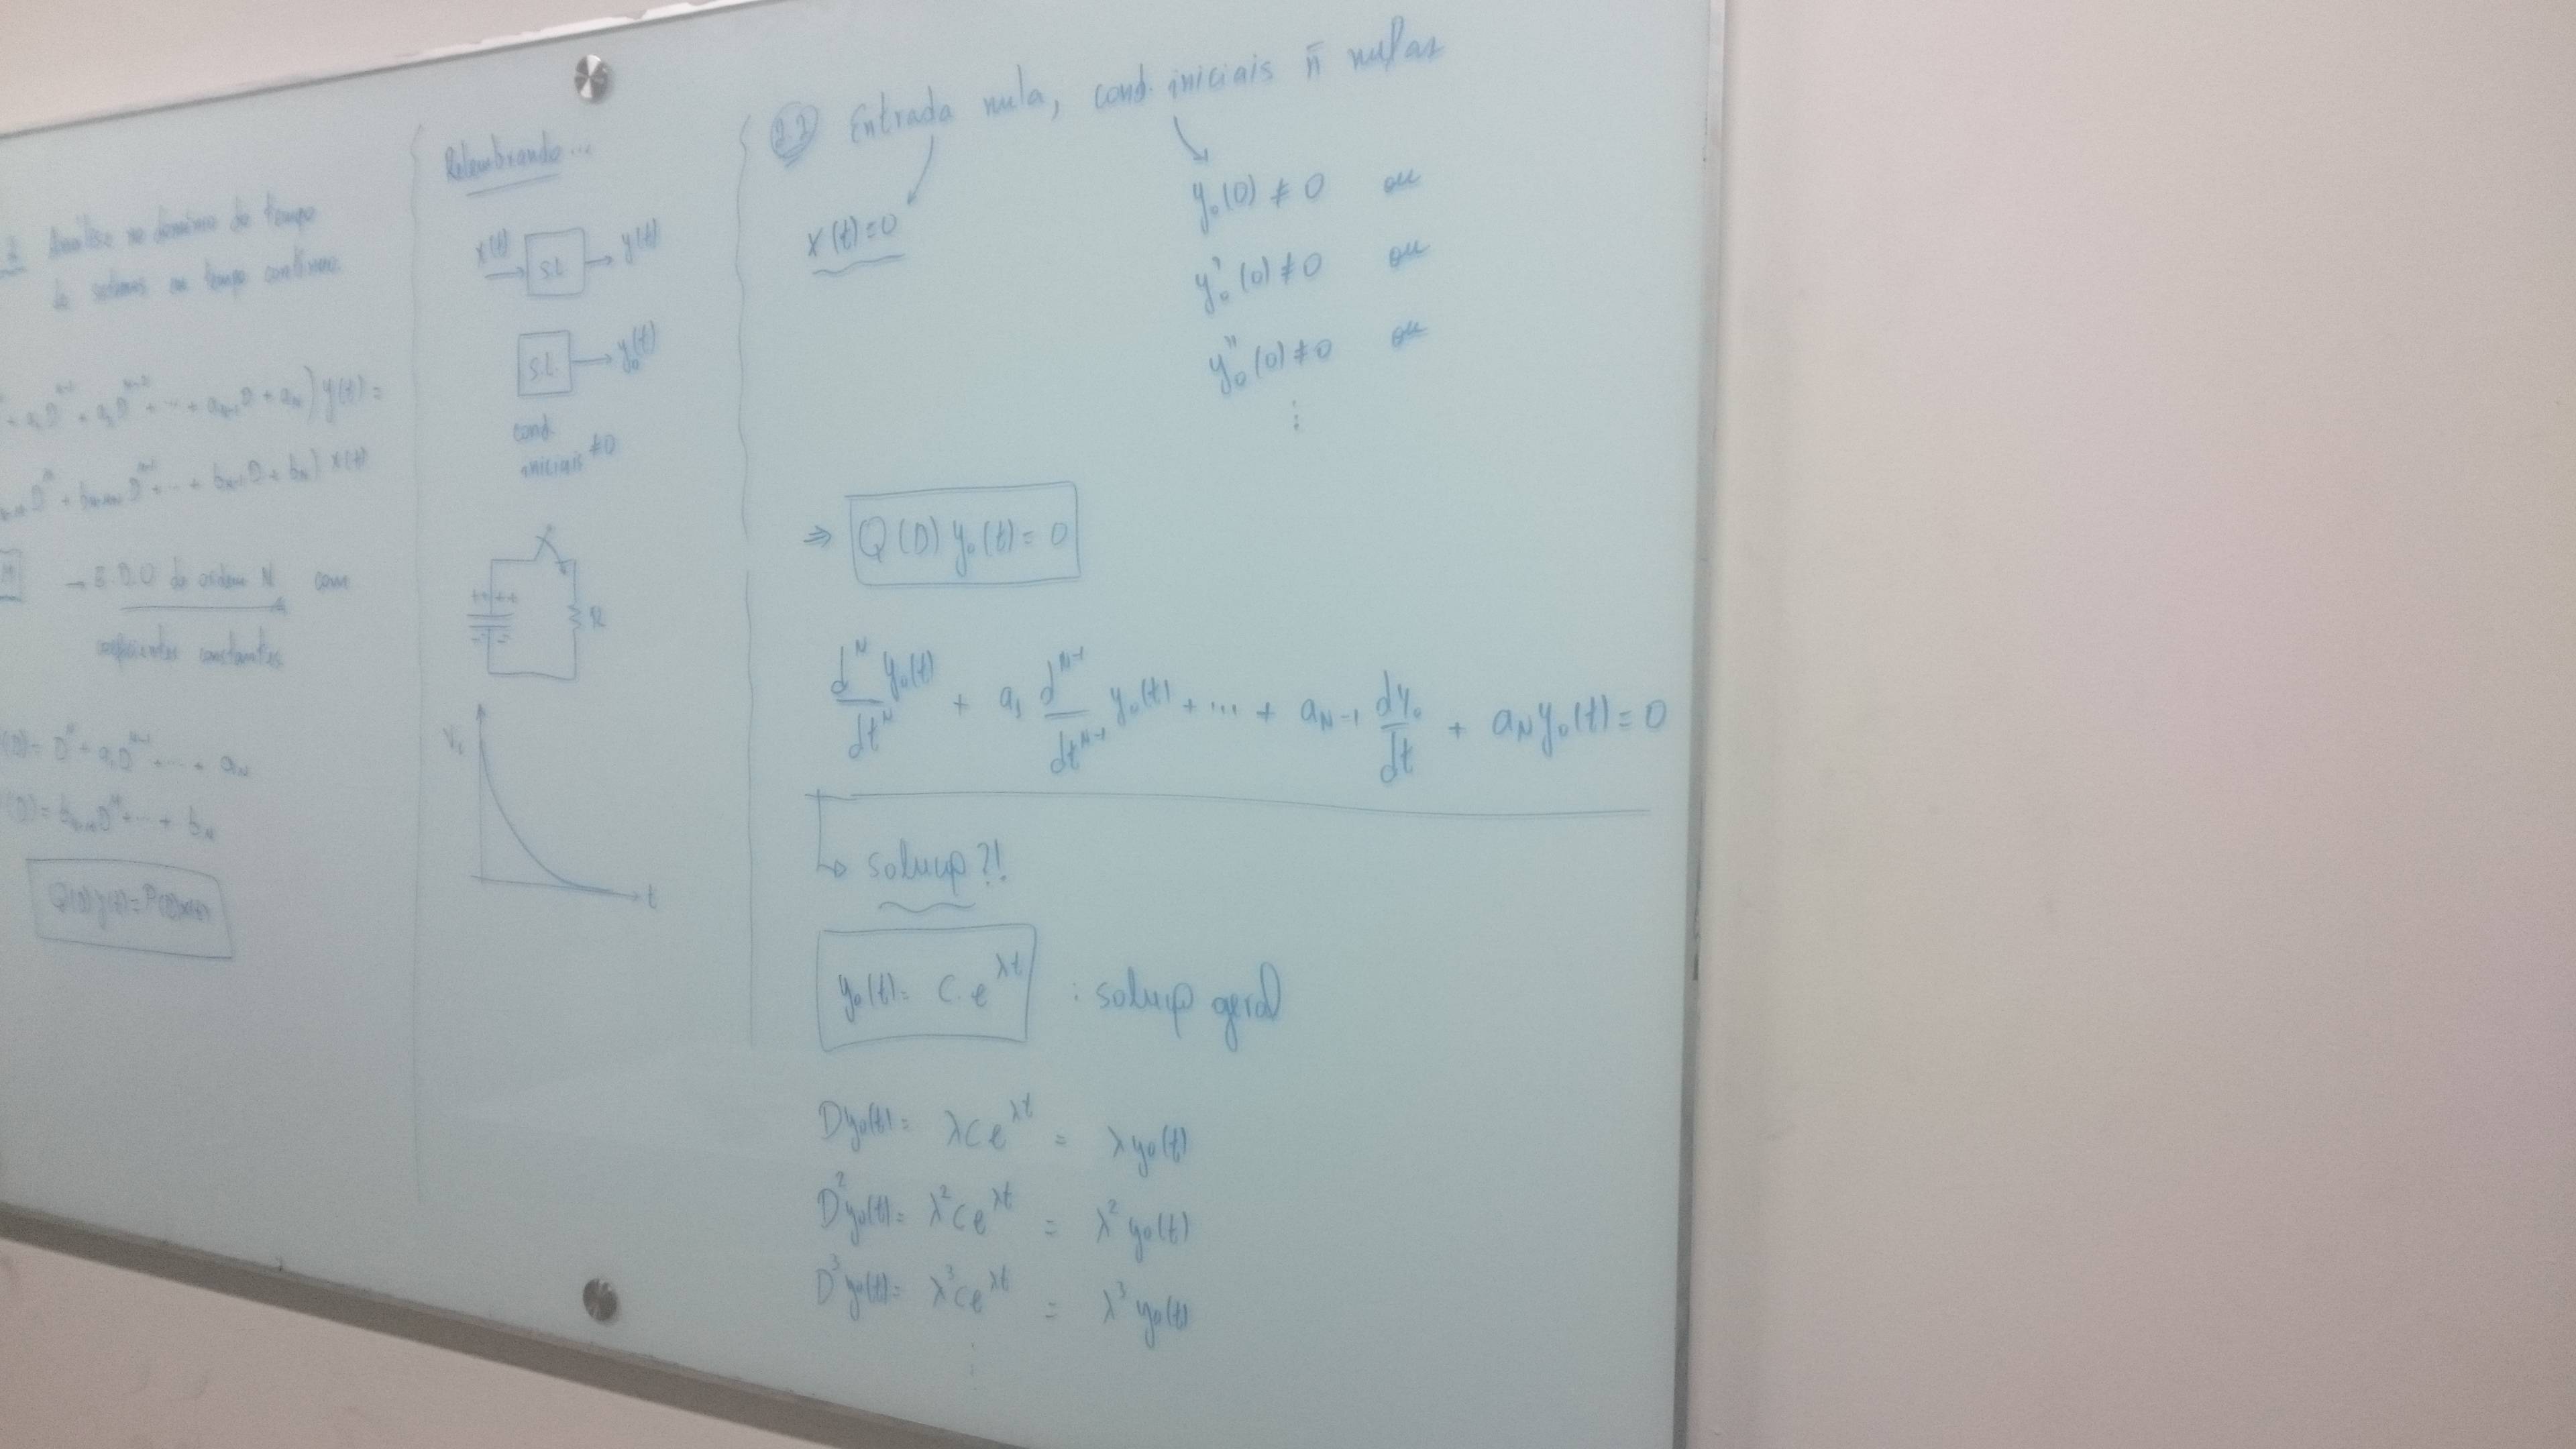 2 Análise no domínio do tempo
de sistemas em tempo contínuo
+ a₁D^(N-1) + a₂D^(N-2) + ... + a_(N-1)D + a_N) y(t) =
D^M + b_(N-M+1) D^(M-1) + ... + b_(N-1)D + b_N) x(t)
→ E.D.O de ordem N com
coeficientes constantes
(D) = D^N + a₁D^(N-1) + ... + a_N
(D) = b_(N-M)D^M + ... + b_N
Q(D)y(t) = P(D)x(t)
Relembrando...
x(t) → S.L → y(t)
S.L. → y₀(t)
cond.
iniciais ≠0
+ + + +
- - -
R
V_c
t
2.2 Entrada nula, cond. iniciais ñ nulas
x(t)=0
y₀(0) ≠ 0 ou
y₀'(0) ≠ 0 ou
y₀''(0) ≠ 0 ou
⋮
⇒ Q(D) y₀(t) = 0
d^N y₀(t)/dt^N + a₁ d^(N-1)/dt^(N-1) y₀(t) + ... + a_(N-1) dy₀/dt + a_N y₀(t) = 0
↳ solução ?!
y₀(t) = C.e^(λt) : solução geral
Dy₀(t) = λce^(λt) = λy₀(t)
D²y₀(t) = λ²ce^(λt) = λ²y₀(t)
D³y₀(t) = λ³ce^(λt) = λ³y₀(t)
⋮